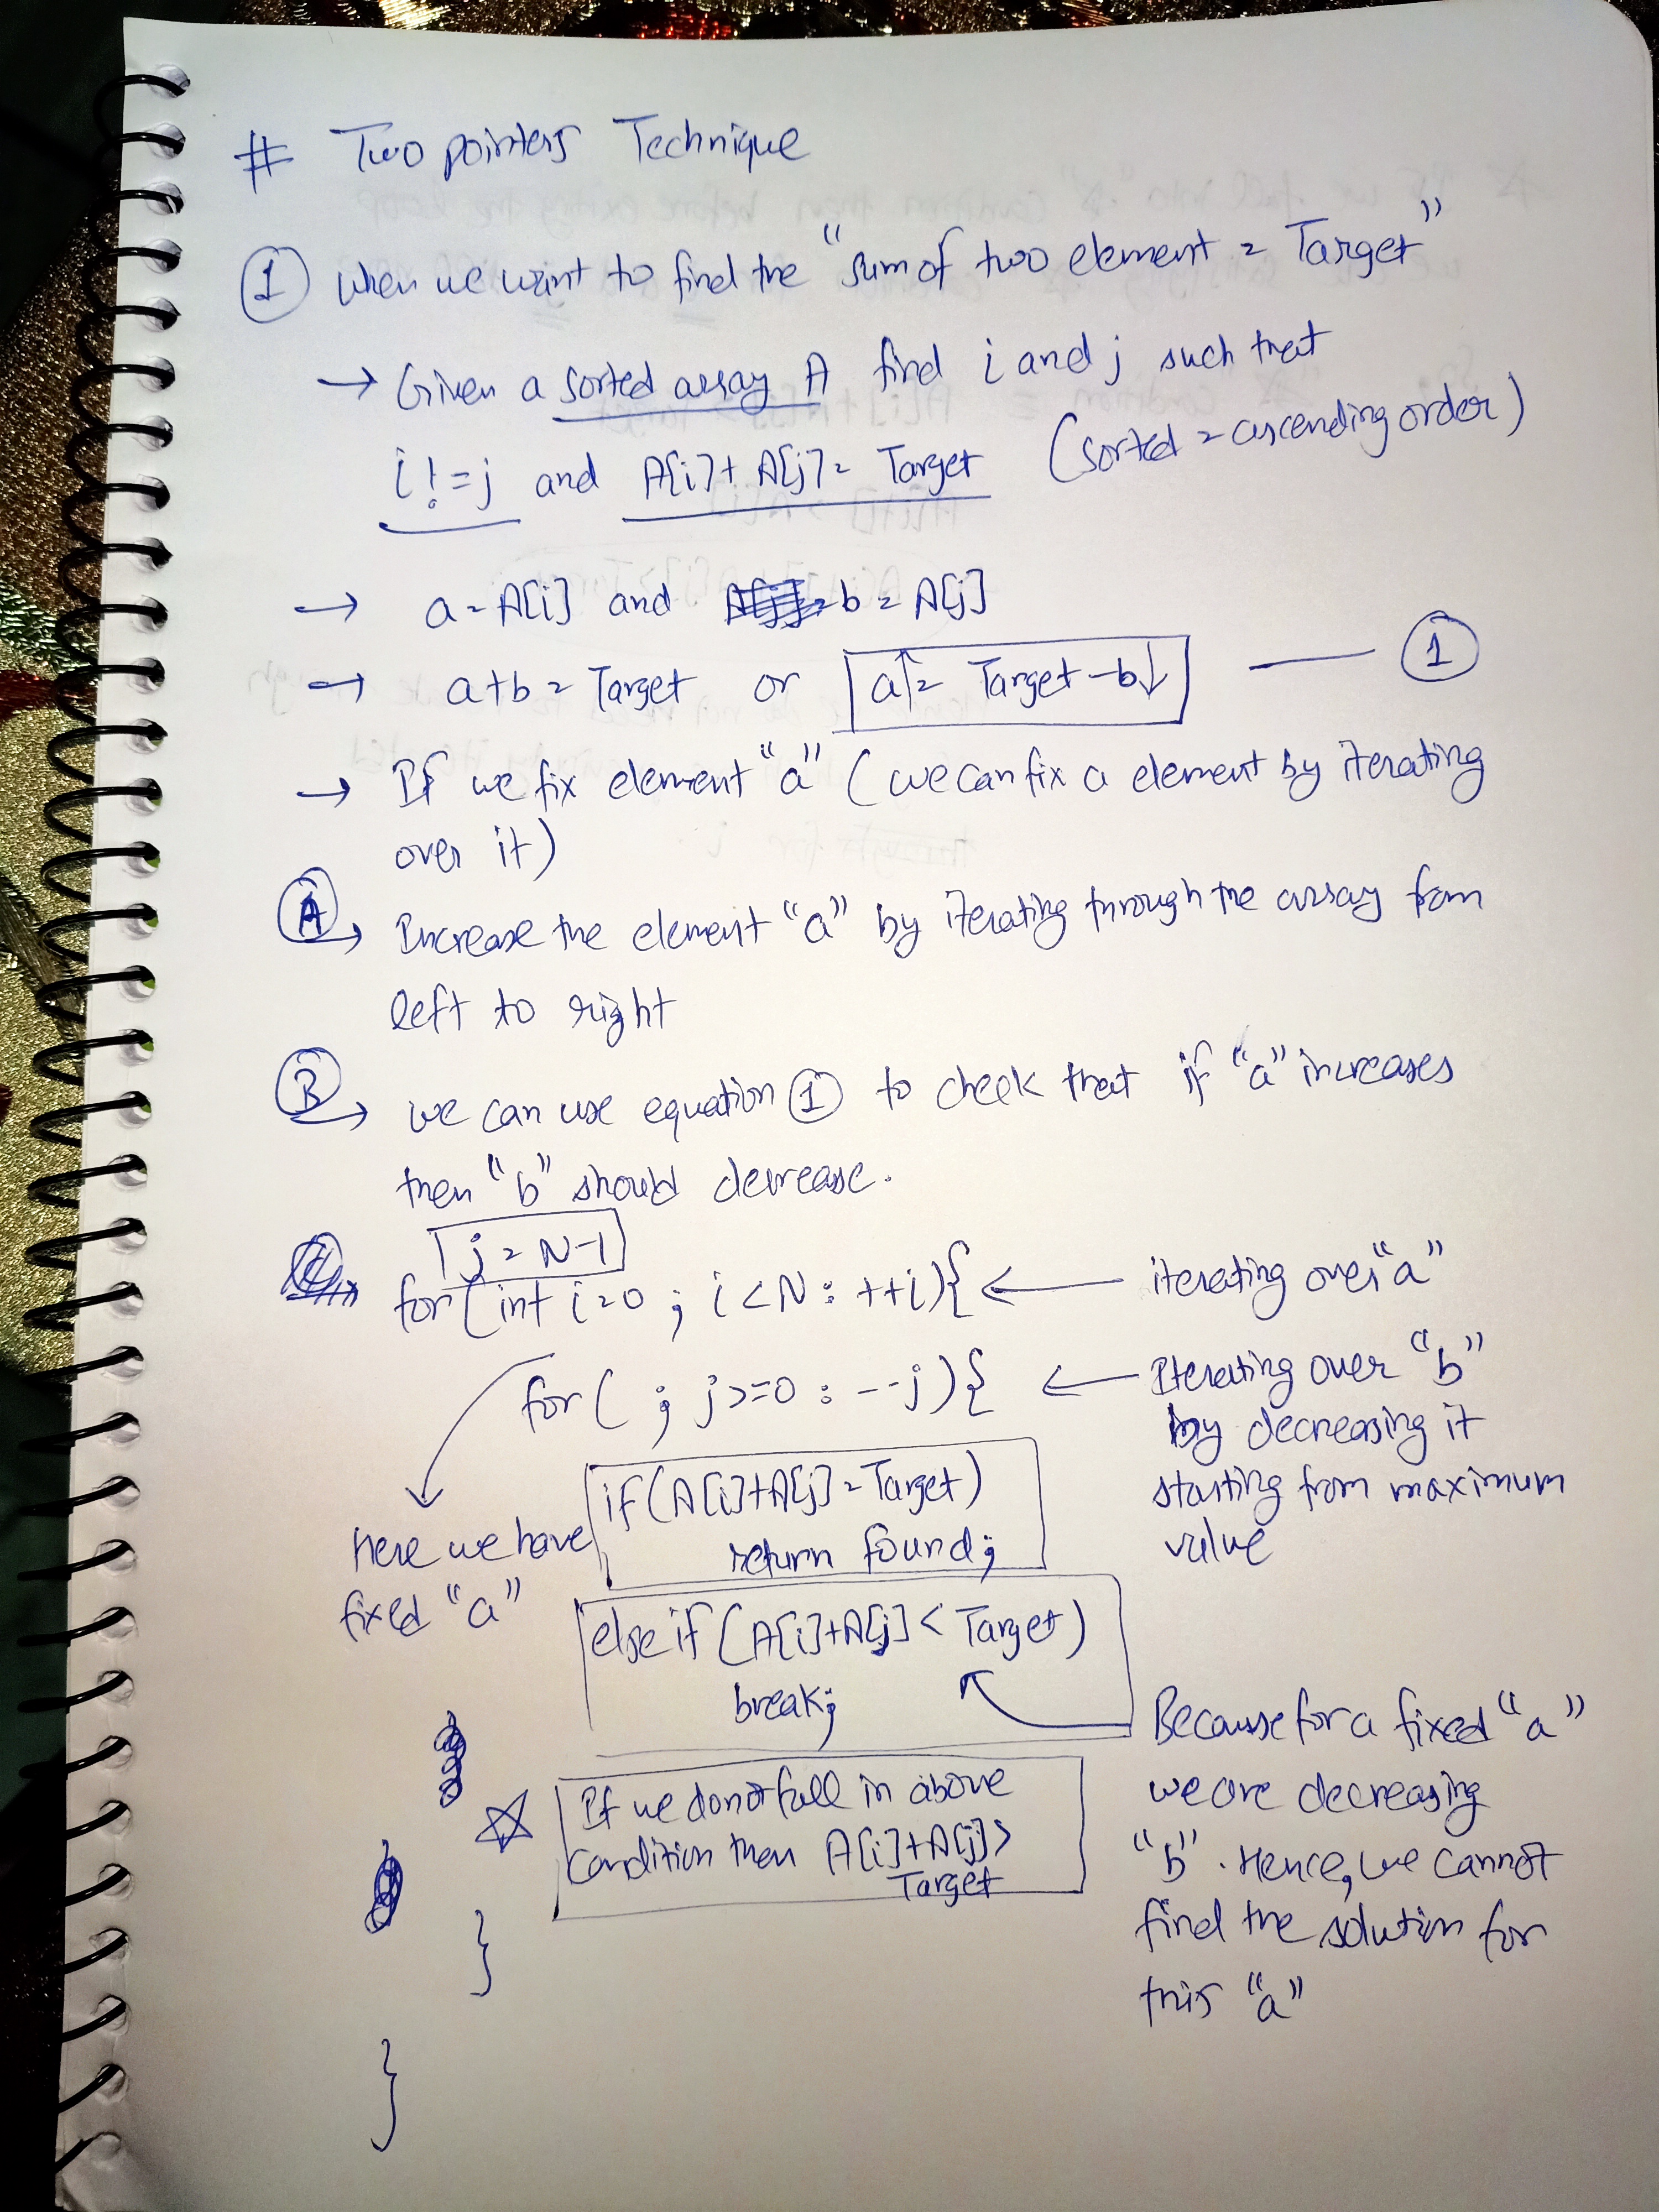 # Two pointers Technique
1 When we want to find the "sum of two element = Target"
→ Given a sorted array A find i and j such that
i != j and A[i] + A[j] = Target (sorted = ascending order)
→ a = A[i] and b = A[j]
→ a+b = Target or a↑ = Target - b↓ — 1
→ If we fix element "a" (we can fix a element by iterating
over it)
A → Increase the element "a" by iterating through the array from
left to right
B → we can use equation 1 to check that if "a" increases
then "b" should decrease.
j = N-1
for (int i=0 ; i<N : ++i){ ← iterating over "a"
for ( ; j>=0 : --j){ ← Iterating over "b"
by decreasing it
starting from maximum
value
Here we have
fixed "a"
if (A[i]+A[j] = Target)
return found;
else if (A[i]+A[j] < Target)
break;
Because for a fixed "a"
we are decreasing
"b". Hence, we cannot
find the solution for
this "a"
☆ If we donot fall in above
condition then A[i]+A[j]>
Target
}
}